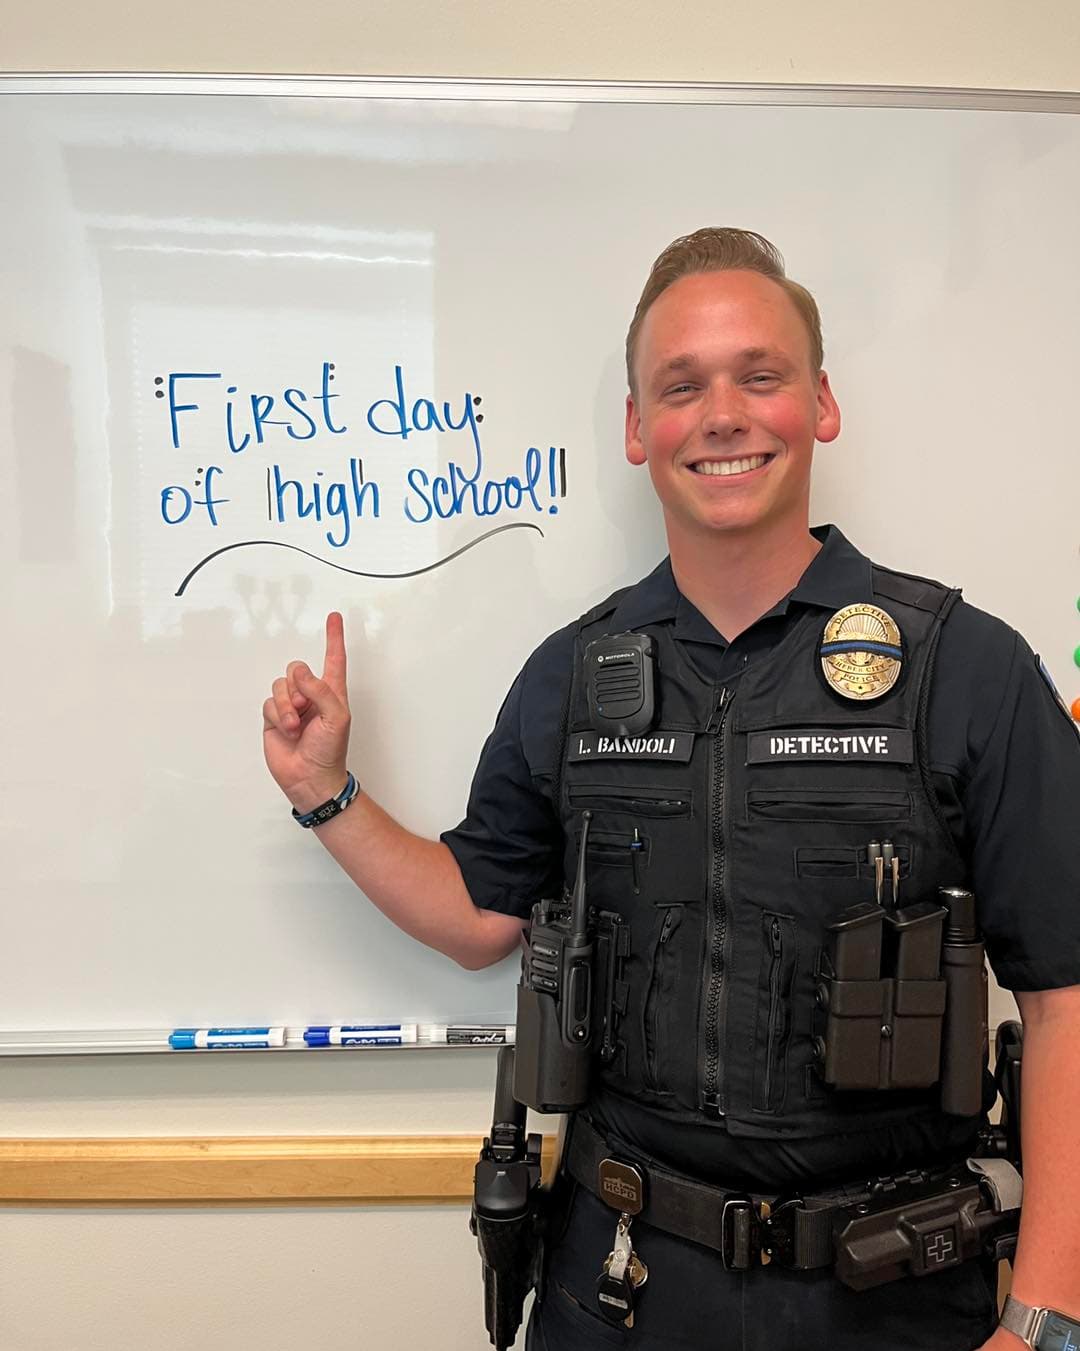 First day
of high school!!
MOTOROLA
DETECTIVE
HEBER CITY
POLICE
L. BANDOLI
DETECTIVE
EXPO
EXPO
EXPO
HCPD